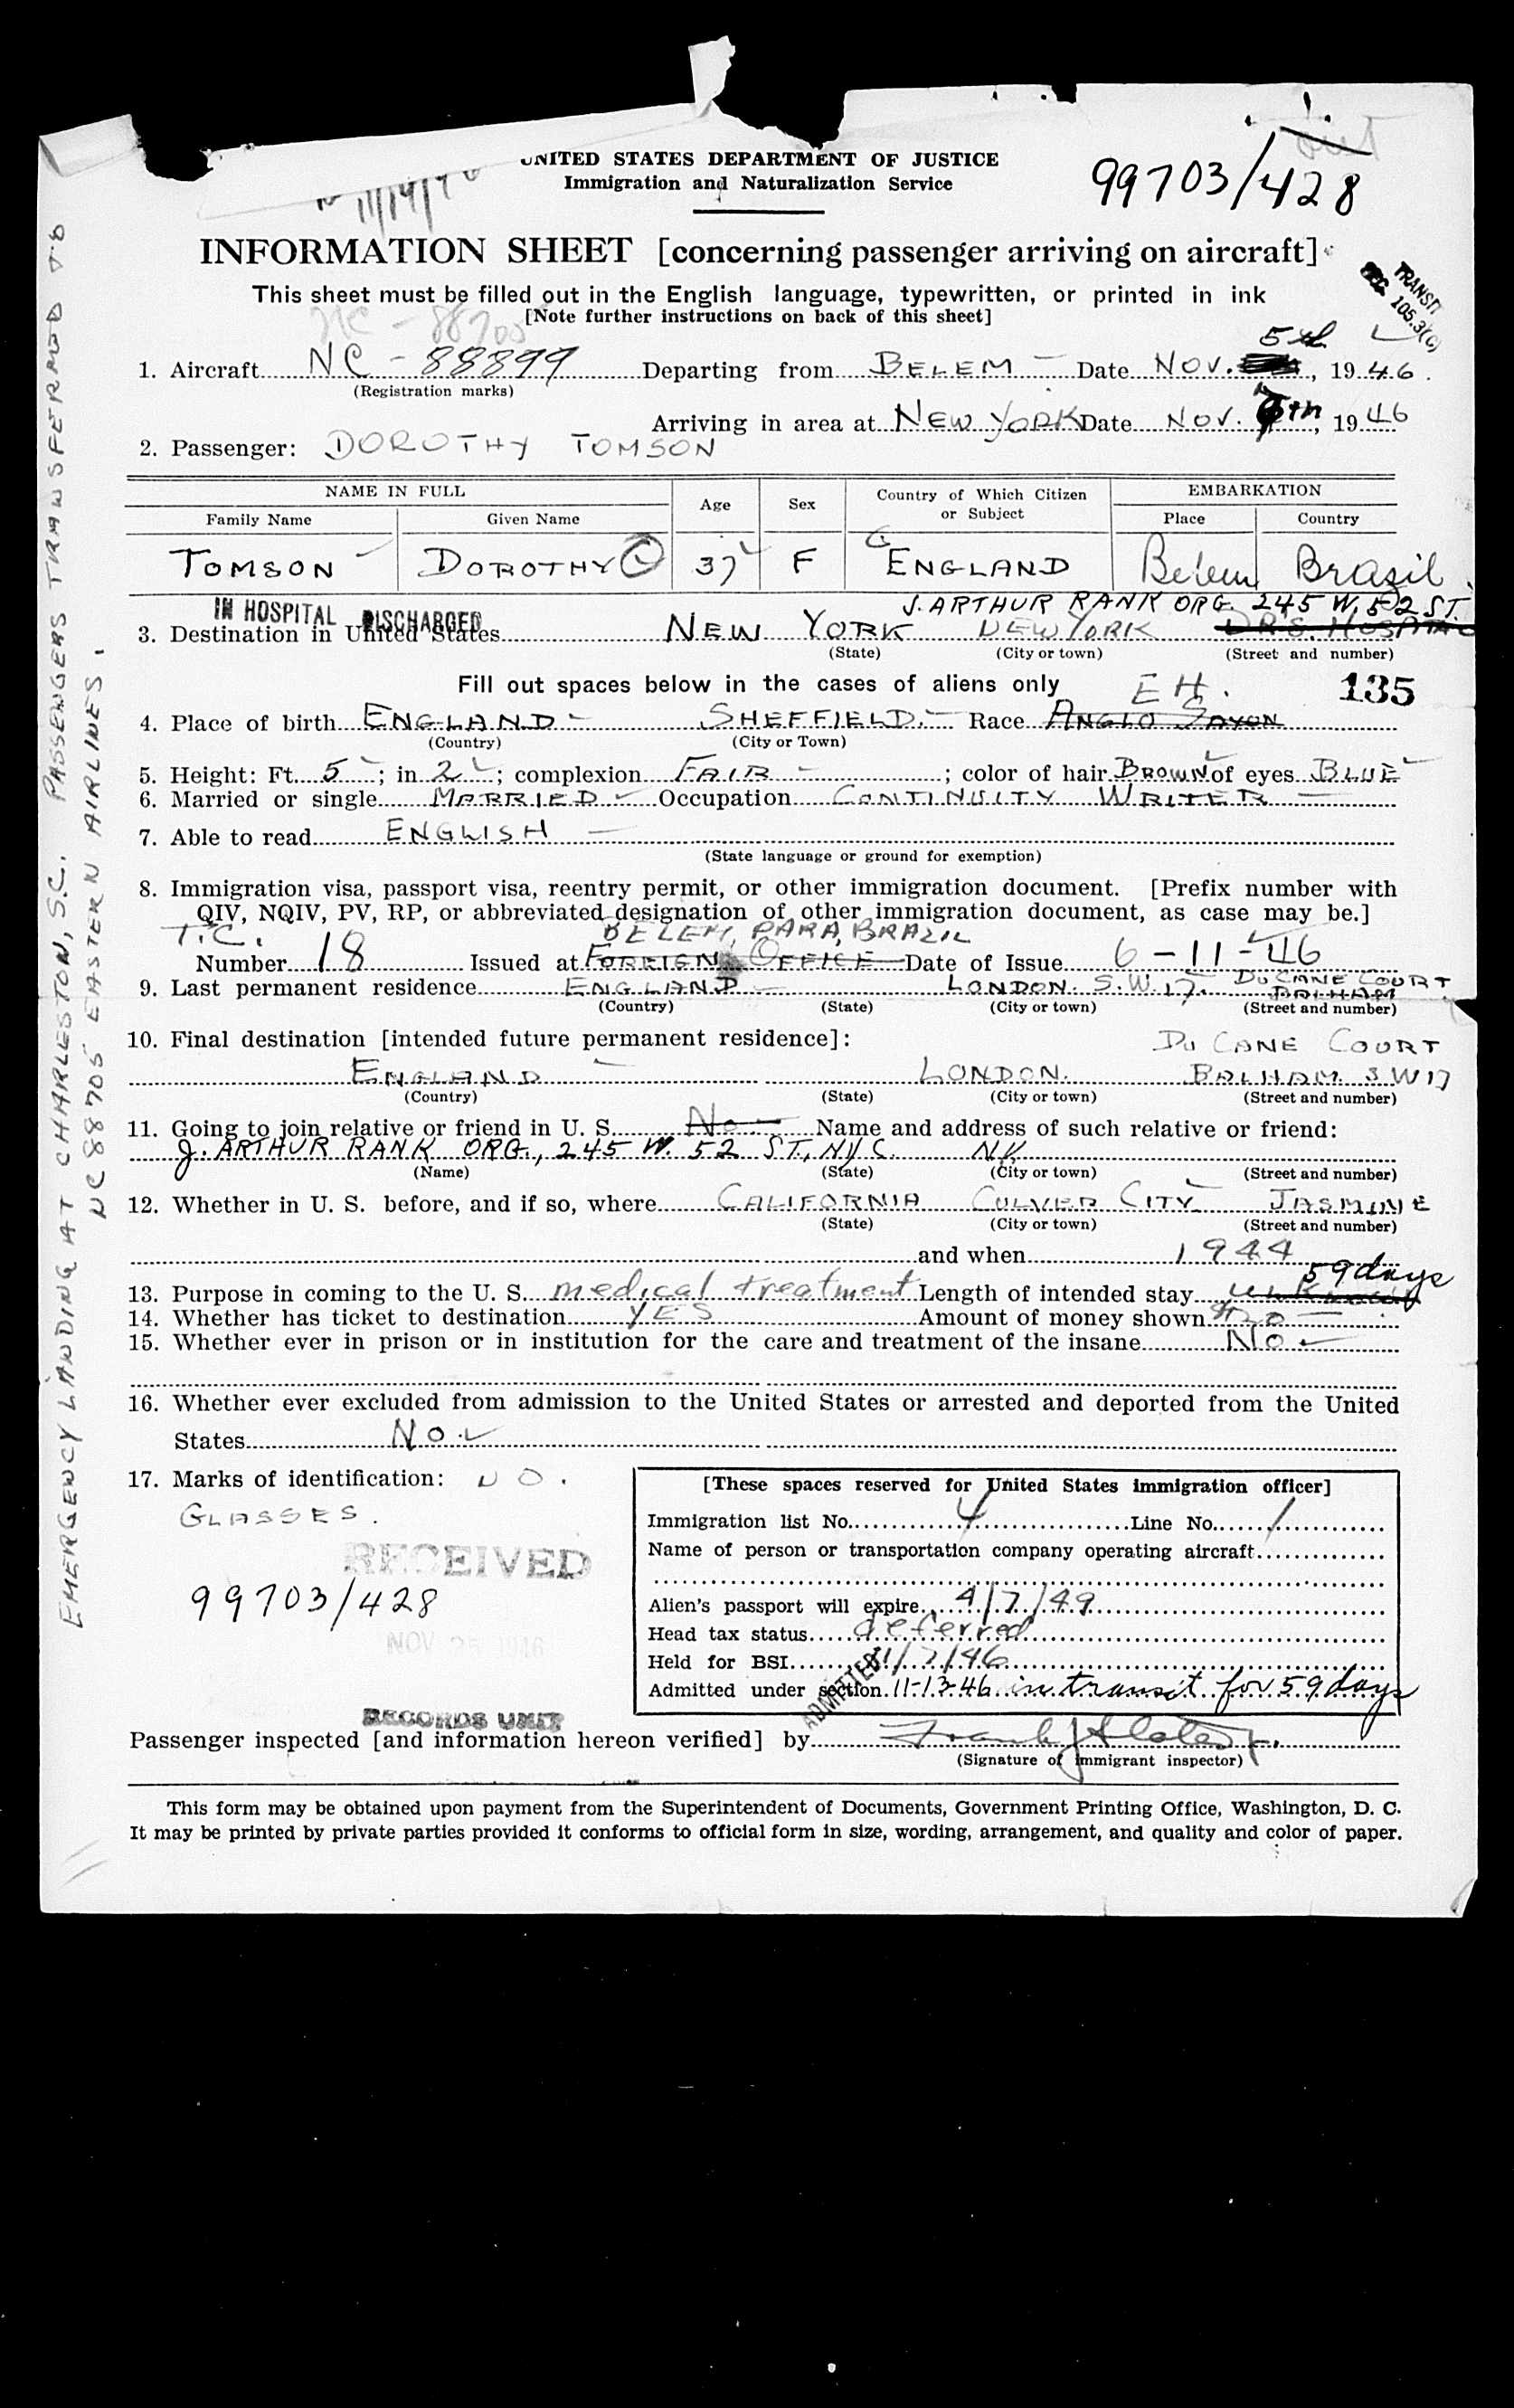 UNITED STATES DEPARTMENT OF JUSTICE
Immigration and Naturalization Service
11/19/46
99703/428
INFORMATION SHEET [concerning passenger arriving on aircraft]
This sheet must be filled out in the English language, typewritten, or printed in ink
[Note further instructions on back of this sheet]
TRANSIT
SEC. 105.3(c)
NC - 88705
1. Aircraft NC - 88899 Departing from BELEM Date NOV. 5th, 1946.
(Registration marks)
Arriving in area at NEW YORK Date NOV. 7th, 1946
2. Passenger: DOROTHY TOMSON
NAME IN FULL Age Sex Country of Which Citizen or Subject EMBARKATION
Family Name Given Name Place Country
TOMSON DOROTHY 37 F ENGLAND Belem Brazil.
IN HOSPITAL DISCHARGED J. ARTHUR RANK ORG. 245 W. 52 ST.
3. Destination in United States NEW YORK NEW YORK DRS. HOSPITAL
(State) (City or town) (Street and number)
Fill out spaces below in the cases of aliens only EH. 135
4. Place of birth ENGLAND SHEFFIELD. Race ANGLO SAXON
(Country) (City or Town)
5. Height: Ft. 5; in 2; complexion FAIR; color of hair BROWN of eyes BLUE
6. Married or single MARRIED Occupation CONTINUITY WRITER
7. Able to read ENGLISH
(State language or ground for exemption)
8. Immigration visa, passport visa, reentry permit, or other immigration document. [Prefix number with
QIV, NQIV, PV, RP, or abbreviated designation of other immigration document, as case may be.]
T.C. BELEM, PARA, BRAZIL
Number 18 Issued at FOREIGN OFFICE Date of Issue 6-11-46
9. Last permanent residence ENGLAND LONDON. S.W.17. DU CANE COURT BALHAM
(Country) (State) (City or town) (Street and number)
10. Final destination [intended future permanent residence]: DU CANE COURT
ENGLAND LONDON. BALHAM SW17
(Country) (State) (City or town) (Street and number)
11. Going to join relative or friend in U. S. No Name and address of such relative or friend:
J. ARTHUR RANK ORG., 245 W. 52 ST., NYC. NY
(Name) (State) (City or town) (Street and number)
12. Whether in U. S. before, and if so, where CALIFORNIA CULVER CITY JASMINE
(State) (City or town) (Street and number)
and when 1944
59 days
13. Purpose in coming to the U. S. medical treatment Length of intended stay unknown
14. Whether has ticket to destination YES Amount of money shown $20
15. Whether ever in prison or in institution for the care and treatment of the insane No
16. Whether ever excluded from admission to the United States or arrested and deported from the United
States No
17. Marks of identification: NO.
GLASSES.
RECEIVED
99703/428
NOV 25 1946
RECORDS UNIT
[These spaces reserved for United States immigration officer]
Immigration list No. 4 Line No. 1
Name of person or transportation company operating aircraft
Alien's passport will expire 4/7/49
Head tax status deferred
Held for BSI 11/7/46
ADMITTED
Admitted under section 11-13-46 in transit for 59 days
Passenger inspected [and information hereon verified] by
(Signature of immigrant inspector)
This form may be obtained upon payment from the Superintendent of Documents, Government Printing Office, Washington, D. C.
It may be printed by private parties provided it conforms to official form in size, wording, arrangement, and quality and color of paper.
EMERGENCY LANDING AT CHARLESTON, S.C. PASSENGERS TRANSFERRED TO
NC 88705 EASTERN AIRLINES.